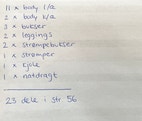 11 x body l/a
2 x body k/a
3 x bukser
2 x leggings
2 x strømpebukser
1 x strømper
1 x kjole
1 x natdragt
23 dele i str 56